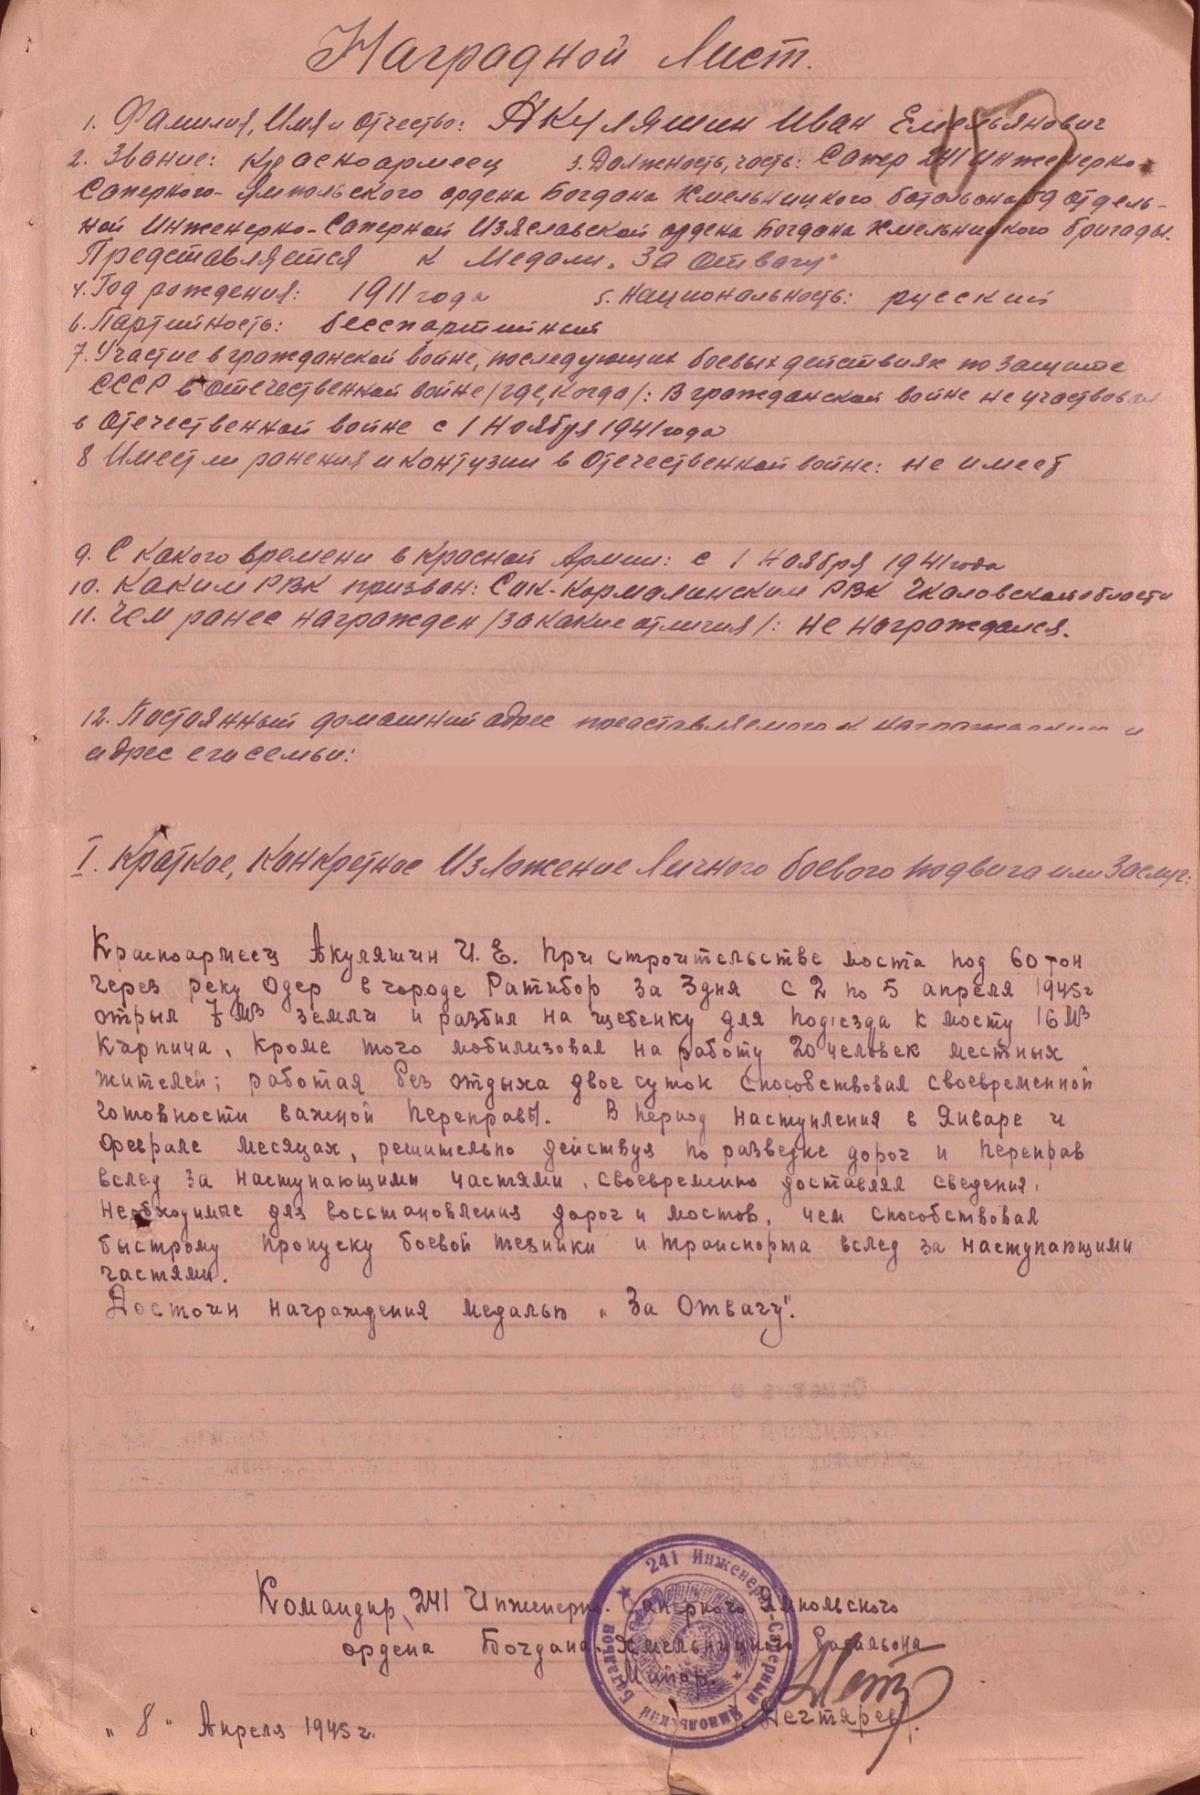 Наградной Лист.
1. Фамилия, Имя и Отчество: Акуляшин Иван Емельянович
2. Звание: Красноармеец 3. Должность, часть: Сапер 241 Инженерно-
Саперного Ямпольского ордена Богдана Хмельницкого батальона 59 отдель-
ной Инженерно-Саперной Изяславской ордена Богдана Хмельницкого бригады.
Представляется к Медали „За отвагу"
4. Год рождения: 1911 года 5. Национальность: русский
6. Партийность: беспартийный
7. Участие в гражданской войне, последующих боевых действиях по защите
СССР в отечественной войне /где, когда/: В гражданской войне не участвовал
в Отечественной войне с 1 Ноября 1941 года
8 Имеет ли ранения и контузии в Отечественной войне: не имеет
9. С какого времени в Красной Армии: с 1 Ноября 1941 года
10. Каким РВК призван: Сак-Кормалинским РВК Чкаловской области
11. Чем ранее награжден /за какие отличия/: не награждался.
12. Постоянный домашний адрес представляемого к награждению и
адрес его семьи:
I. Краткое, Конкретное Изложение Личного боевого подвига или Заслуг:
Красноармеец Акуляшин И. Е. при строительстве моста под 60 тон
через реку Одер в городе Ратибор за 3 дня с 2 по 5 апреля 1945 г
отрыл 7 м³ земли и разбил на щебенку для подъезда к мосту 16 м³
Кирпича, кроме того мобилизовал на работу 20 человек местных
жителей; работая без отдыха двое суток способствовал своевременной
готовности важной переправы. В период наступления в Январе и
Феврале месяцах, решительно действуя по разведке дорог и переправ
вслед за наступающими частями, своевременно доставлял сведения,
необходимые для восстановления дорог и мостов, чем способствовал
быстрому пропуску боевой техники и транспорта вслед за наступающими
частями.
Достоин награждения медалью „За Отвагу".
Командир 241 Инженерно-Саперного Ямпольского
ордена Богдана Хмельницкого Батальона
Майор.
Дегтярев
241 Инженерно-Саперный Ямпольский Батальон
„8" Апреля 1945 г.